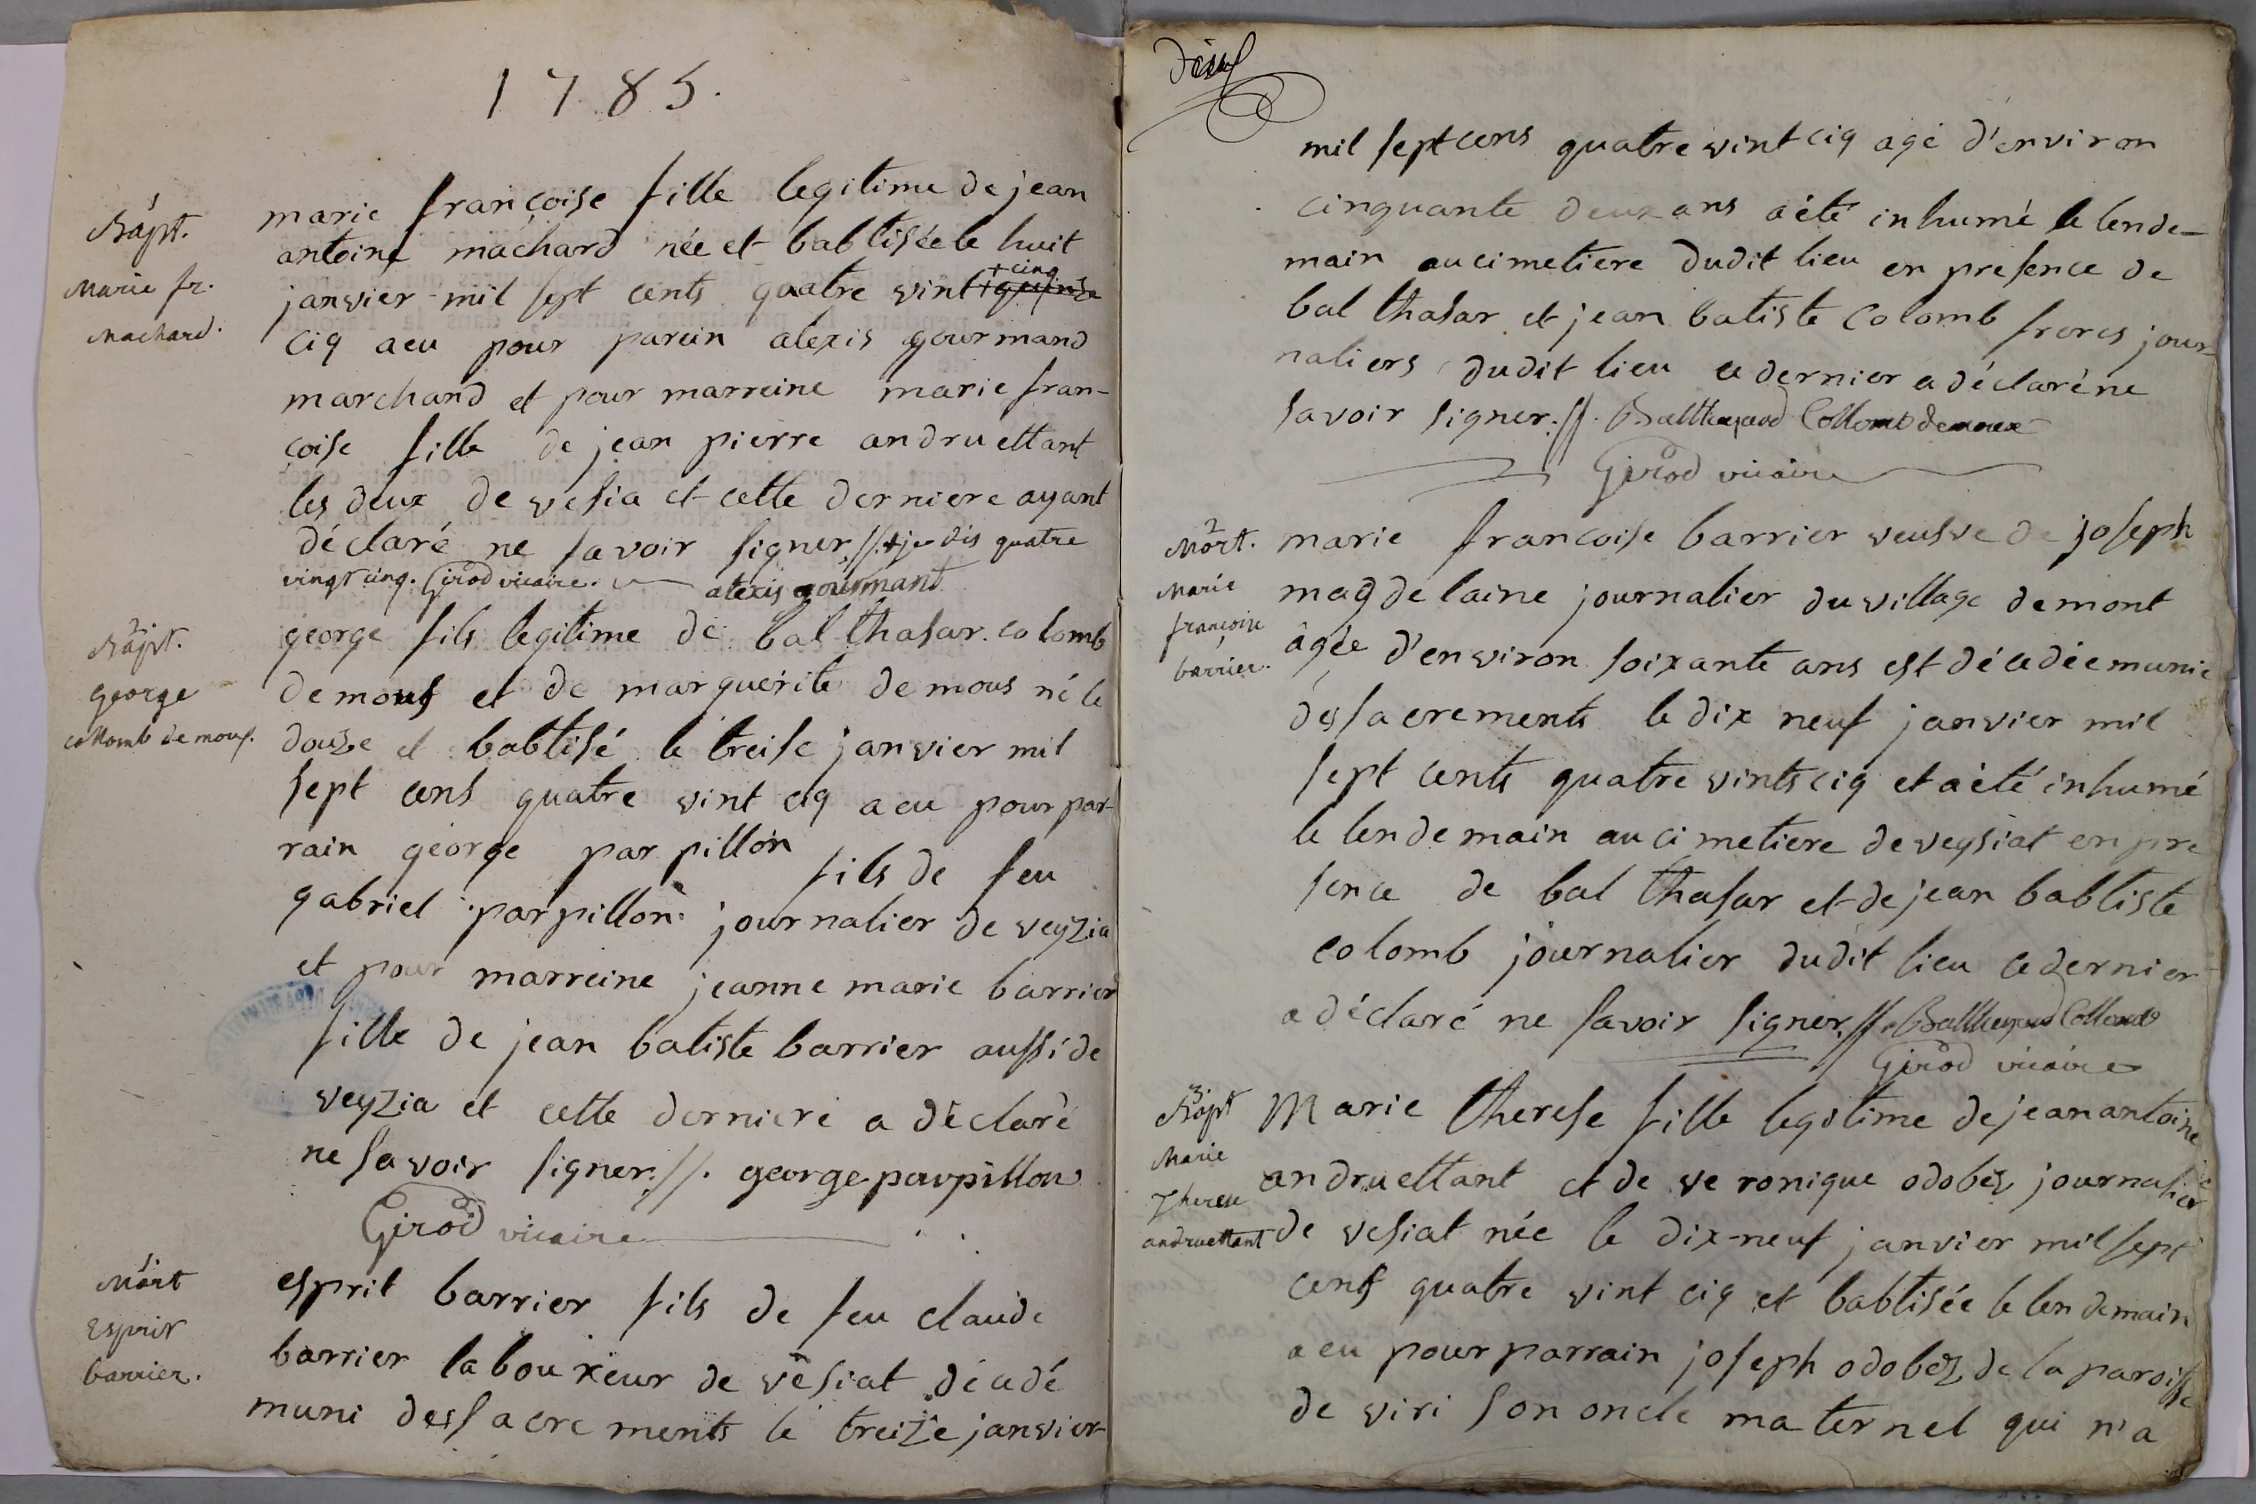 1785.
1
Bapt.
Marie fr.
Machard.
marie françoise fille legitime de jean
antoine machard née et babtisée le huit
janvier mil sept cents quatre vint + cinq
ciq a eu pour parein alexis gourmand
marchand et pour marreine marie fran-
çoise fille de jean pierre andruettant
les deux de vesia et cette derniere ayant
déclaré ne savoir signer.//.+je dis quatre
vingt cinq. Girod vicaire. alexis gourmant
2
Bapt.
George
collomb de mous.
george fils legitime de balthasar colomb
demous et de marguerite demous né le
douze et babtisé le treise janvier mil
sept cens quatre vint ciq a eu pour par-
rain george parpillon fils de feu
gabriel parpillon journalier de veyzia
et pour marreine jeanne marie barrier
fille de jean batiste barrier aussi de
veyzia et cette derniere a déclaré
ne savoir signer.//. george parpillon
Girod vicaire
1
Mort
Esprit
barrier.
esprit barrier fils de feu claude
barrier laboureur de vesiat décédé
muni des sacrements le treize janvier
mil sept cens quatre vint ciq agé d'environ
cinquante deux ans a été inhumé le lende-
main au cimetiere dudit lieu en presence de
balthasar et jean batiste colomb freres jour-
naliers dudit lieu ce dernier a déclaré ne
savoir signer.//. Collomb demoux
Girod vicaire
2
Mort.
Marie
françoise
barrier.
marie francoise barrier veufve de joseph
magdelaine journalier du village de mont
âgée d'environ soixante ans est décédée munie
des sacrements le dix neuf janvier mil
sept cents quatre vints ciq et a été inhumé
le lendemain au cimetiere de veysiat en pre
sence de balthasar et de jean babtiste
colomb journalier dudit lieu ce dernier
a déclaré ne savoir signer.//. Collomb
Girod vicaire
3
Bapt
Marie
Therese
andruettant
Marie therese fille legitime de jean antoine
andruettant et de veronique odobez journalier
de vesiat née le dix-neuf janvier mil sept
cents quatre vint ciq et babtisée le lendemain
a eu pour parrain joseph odobez de la paroisse
de viri son oncle maternel qui n'a